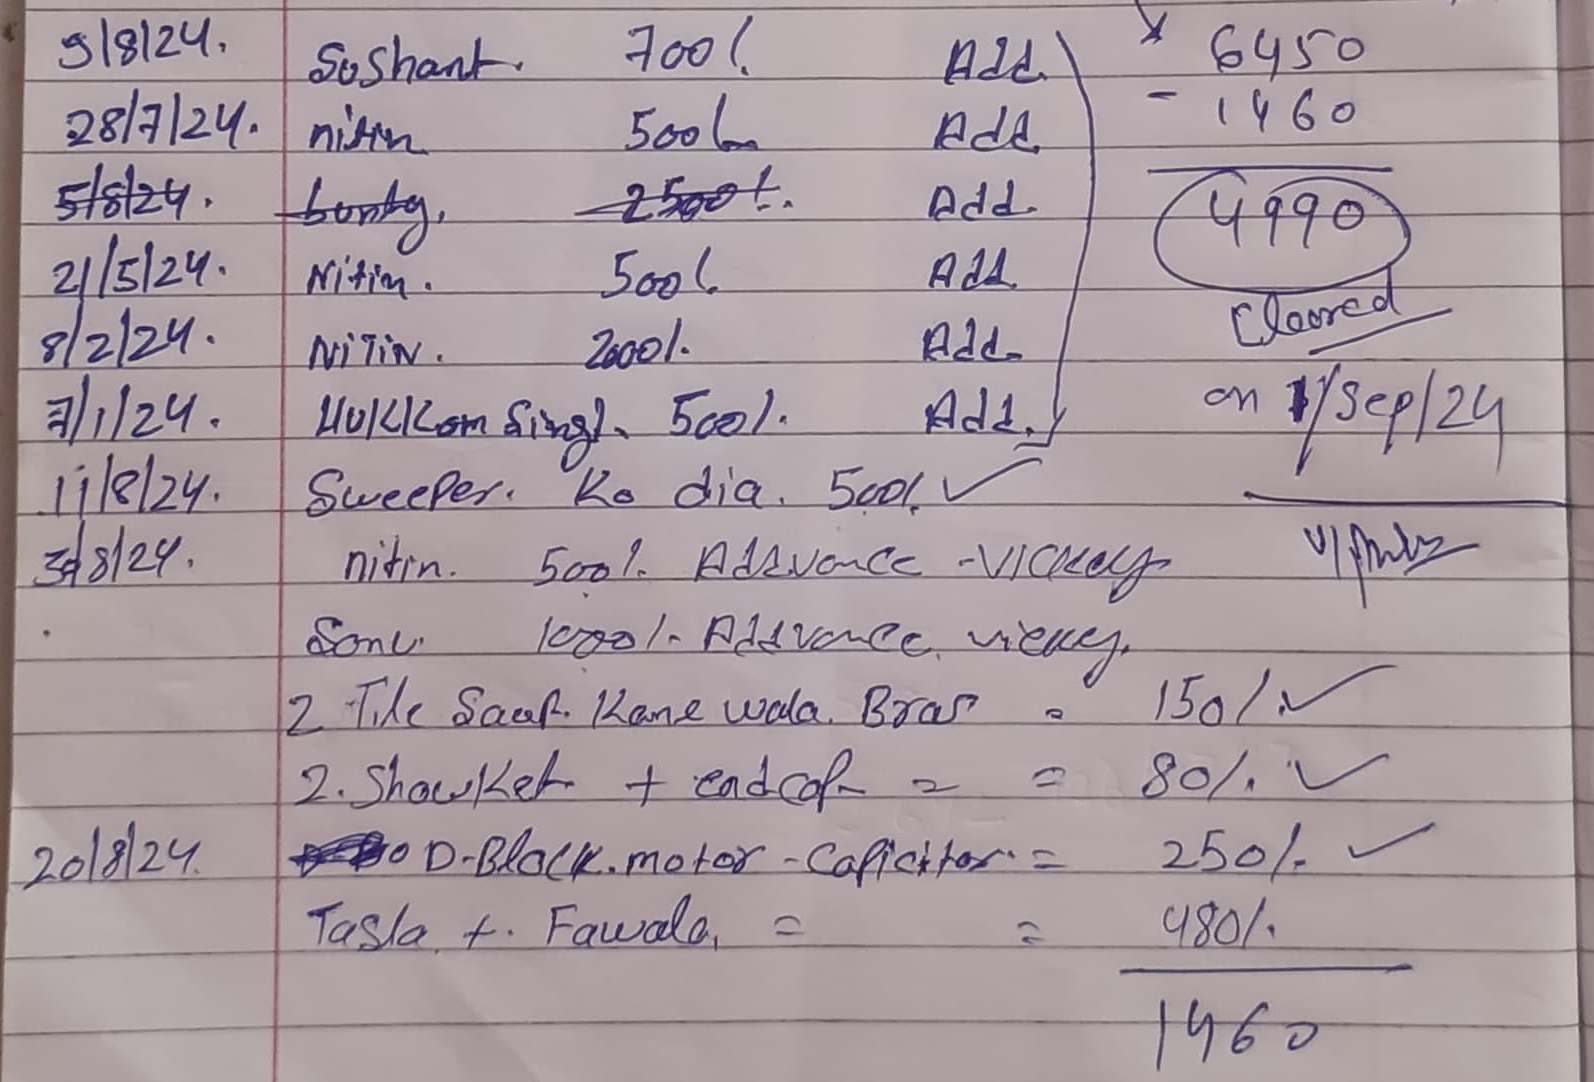 9/8/24. Soshant. 700/. Add
28/7/24. nitin 500/- Add
5/8/24. bonty. 2500/. Add.
21/5/24. Nitin. 500/. Add
8/2/24. NiTiN. 2000/. Add.
7/1/24. HUKKam Singh 500/. Add.
11/8/24. Sweeper. Ko dia. 500/. ✓
8/24. nitin. 500/. Addvance - VICKey
Sonu 1000/. Addvance. vickey.
2 Tile Saaf. Kane wala. Bras = 150/. ✓
2. Showket + endcap = = 80/. ✓
20/8/24. D-Block. motor - Capicitor. = 250/. ✓
Tasla + Fawala, = = 480/.
1460
6450
- 1460
4990
Cleared
on 1/Sep/24